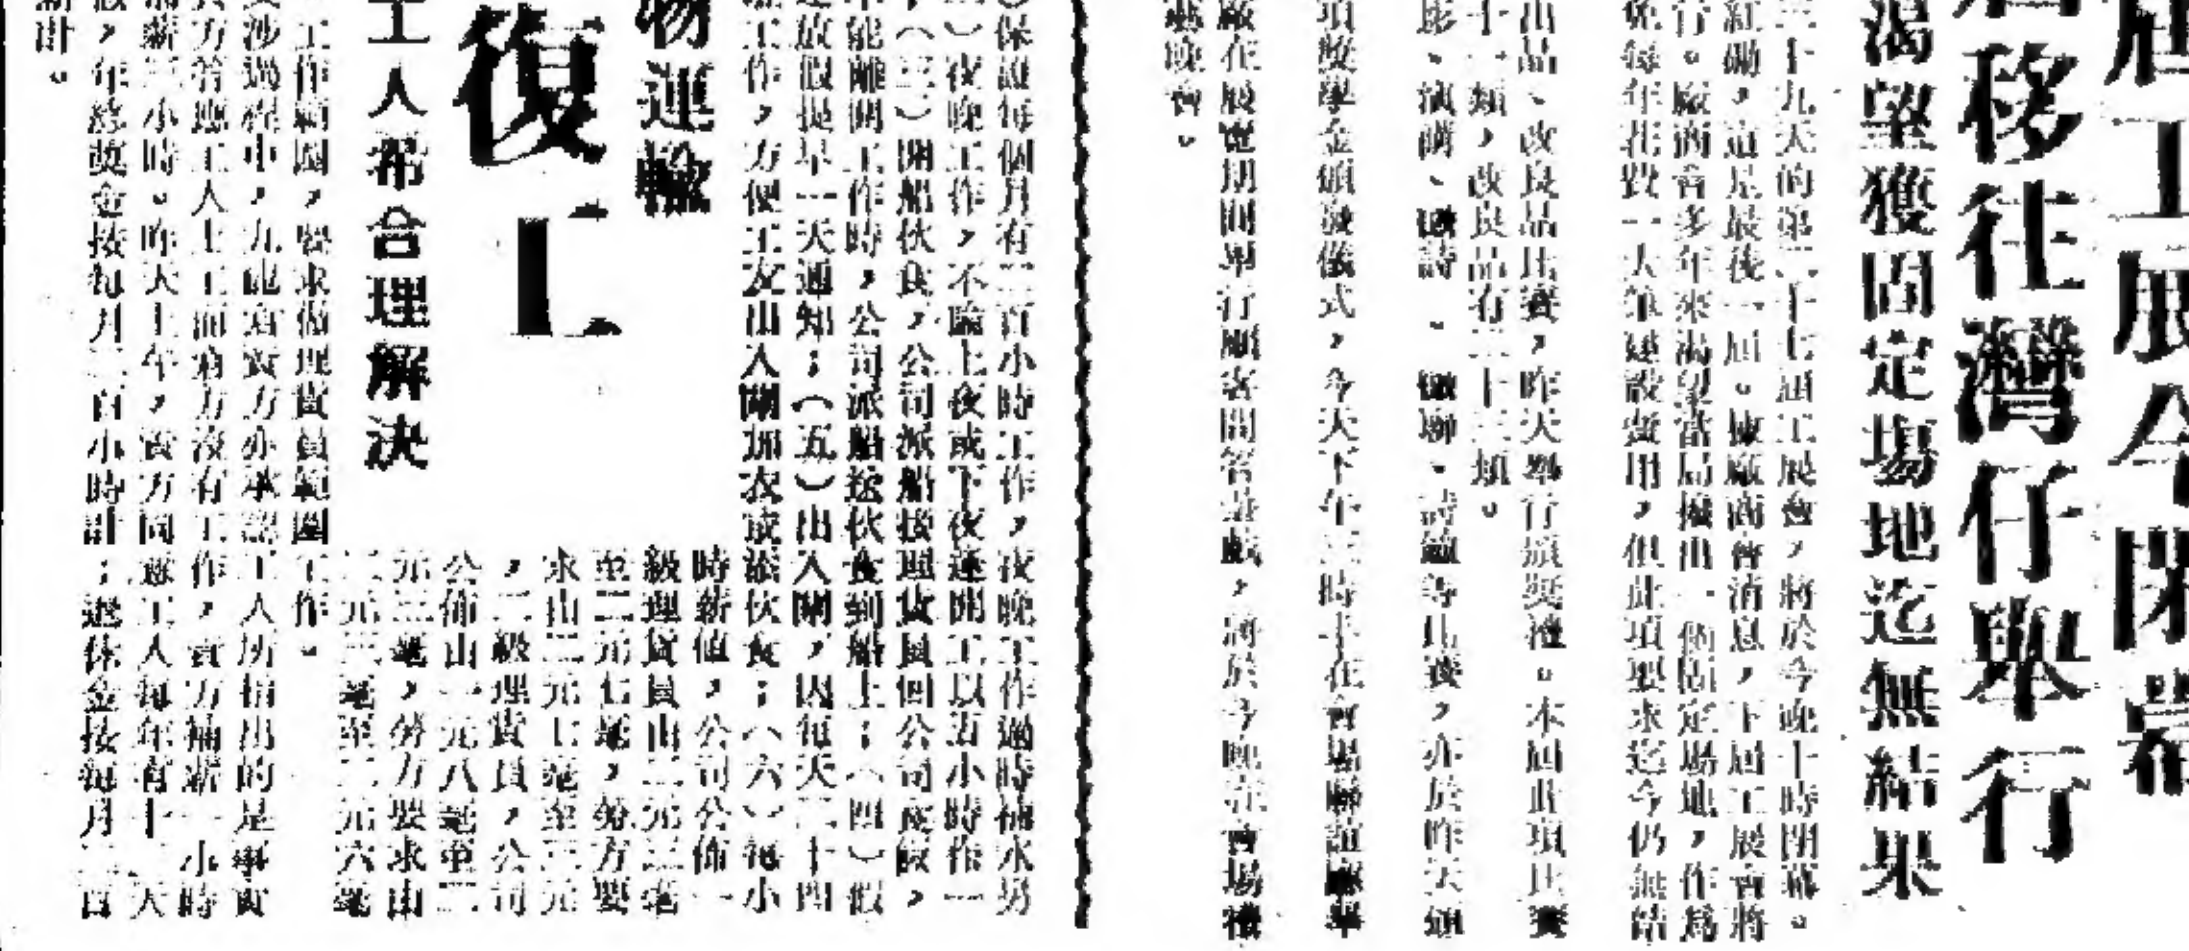 屆工展今閉幕
屆移往灣仔舉行
渴望獲固定場地迄無結果
三十九天的第二十七屆工展會，將於今晚十時閉幕。
紅磡，這是最後一屆。據廠商會消息，下屆工展會將
行。廠商會多年來渴望當局撥出一個固定場地，作為
免每年花費一大筆建設費用，但此項要求迄今仍無結
出品、改良品比賽，昨天舉行頒獎禮。本屆此項比賽
十一類，改良品有二十三類。
影、演講、詩、聯、詩鐘等比賽，亦於昨天頒
項獎學金頒發儀式，今天下午三時半在會場聯誼廳舉
廠在展覽期間舉行顧客問答遊戲，將於今晚在會場
藝晚會。
物運輸
復工
工人希合理解決
）保證每個月有二百小時工作，夜晚工作過時補水另
）夜晚工作，不論上夜或下夜連開工以五小時作一
，（三）開船伙食，公司派船接理貨員回公司夜飯，
不能離開工作時，公司派船送伙食到船上；（四）假
放假提早一天通知；（五）出入閘，因每天二十四
工作，方便工友出入閘加衣或添伙食；（六）每小
時薪值，公司公佈一
級理貨員由二元三毫
至二元七毫，勞方要
求由二元七毫至三元
，二級理貨員，公司
公佈由一元八毫至二
元三毫，勞方要求由
二元三毫至二元六毫
工作範圍，要求做理貨員範圍工作。
交涉過程中，九龍倉資方亦承認工人所指出的是事實
資方答應工人上工而倉方沒有工作，資方補薪一小時
補薪三小時。昨天上午，資方同意工人每年有十二天
假，年終獎金按每月二百小時計；退休金按每月二百
計。